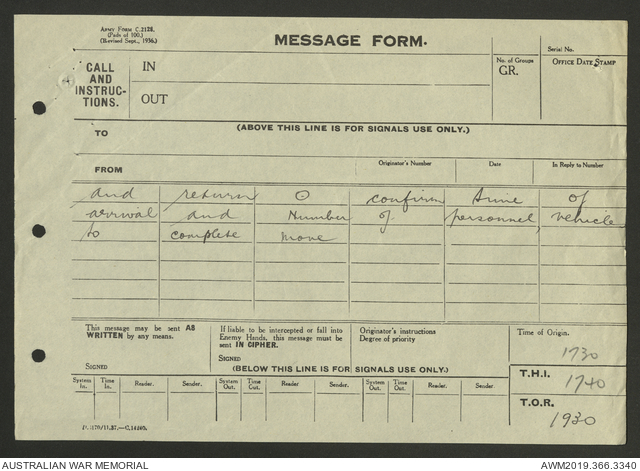 ARMY FORM C.2128.
(Pads of 100.)
(Revised Sept., 1936.)
MESSAGE FORM.
Serial No.
CALL AND INSTRUC-TIONS.
IN
OUT
No. of Groups
GR.
OFFICE DATE STAMP
(ABOVE THIS LINE IS FOR SIGNALS USE ONLY.)
TO
FROM
Originator's Number
Date
In Reply to Number
and return O confirm time of
arrival and Number of personnel, vehicles
to complete move
This message may be sent AS WRITTEN by any means.
SIGNED
If liable to be intercepted or fall into Enemy Hands, this message must be sent IN CIPHER.
SIGNED
Originator's instructions
Degree of priority
Time of Origin.
1730
T.H.I.
1740
T.O.R.
1930
(BELOW THIS LINE IS FOR SIGNALS USE ONLY.)
System In.
Time In.
Reader.
Sender.
System Out.
Time Out.
Reader
Sender.
System Out.
Time Out.
Reader.
Sender.
AUSTRALIAN WAR MEMORIAL
AWM2019.366.3340